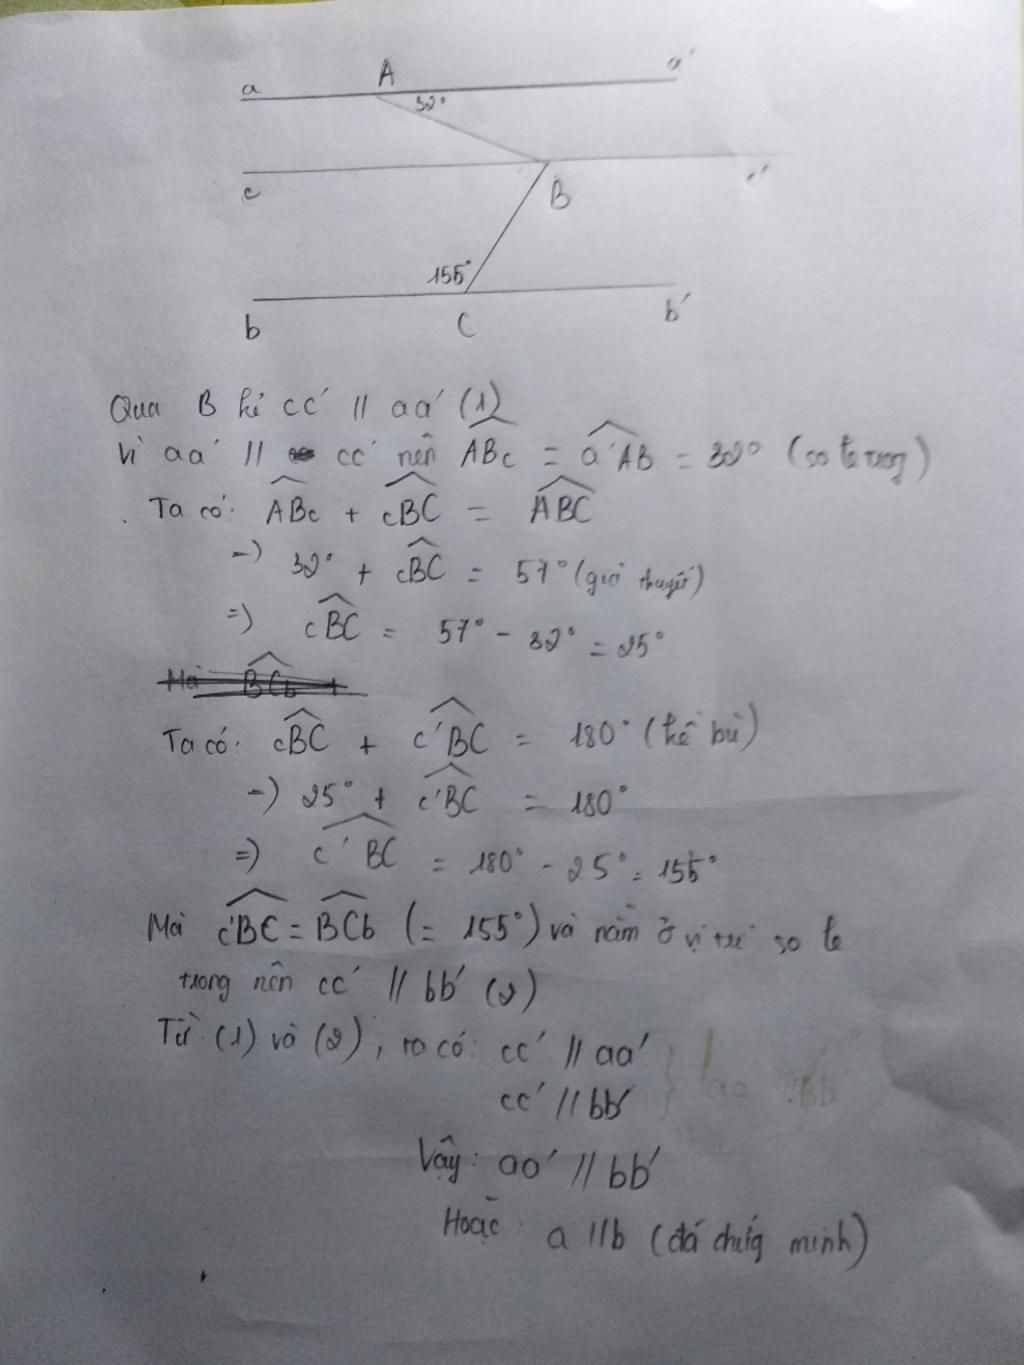 a A a'
32°
c B c'
155°
b C b'
Qua B kẻ cc' // aa' (1)
Vì aa' // cc' nên ABc = a'AB = 32° (so le trong)
Ta có: ABc + cBC = ABC
=) 32° + cBC = 57° (giả thuyết)
=) cBC = 57° - 32° = 25°
Mà BCb
Ta có: cBC + c'BC = 180° (kề bù)
=) 25° + c'BC = 180°
=) c'BC = 180° - 25° = 155°
Mà c'BC = BCb (= 155°) và nằm ở vị trí so le
trong nên cc' // bb' (2)
Từ (1) và (2), ta có: cc' // aa'
cc' // bb'
Vậy: aa' // bb'
Hoặc: a // b (đã chứng minh)